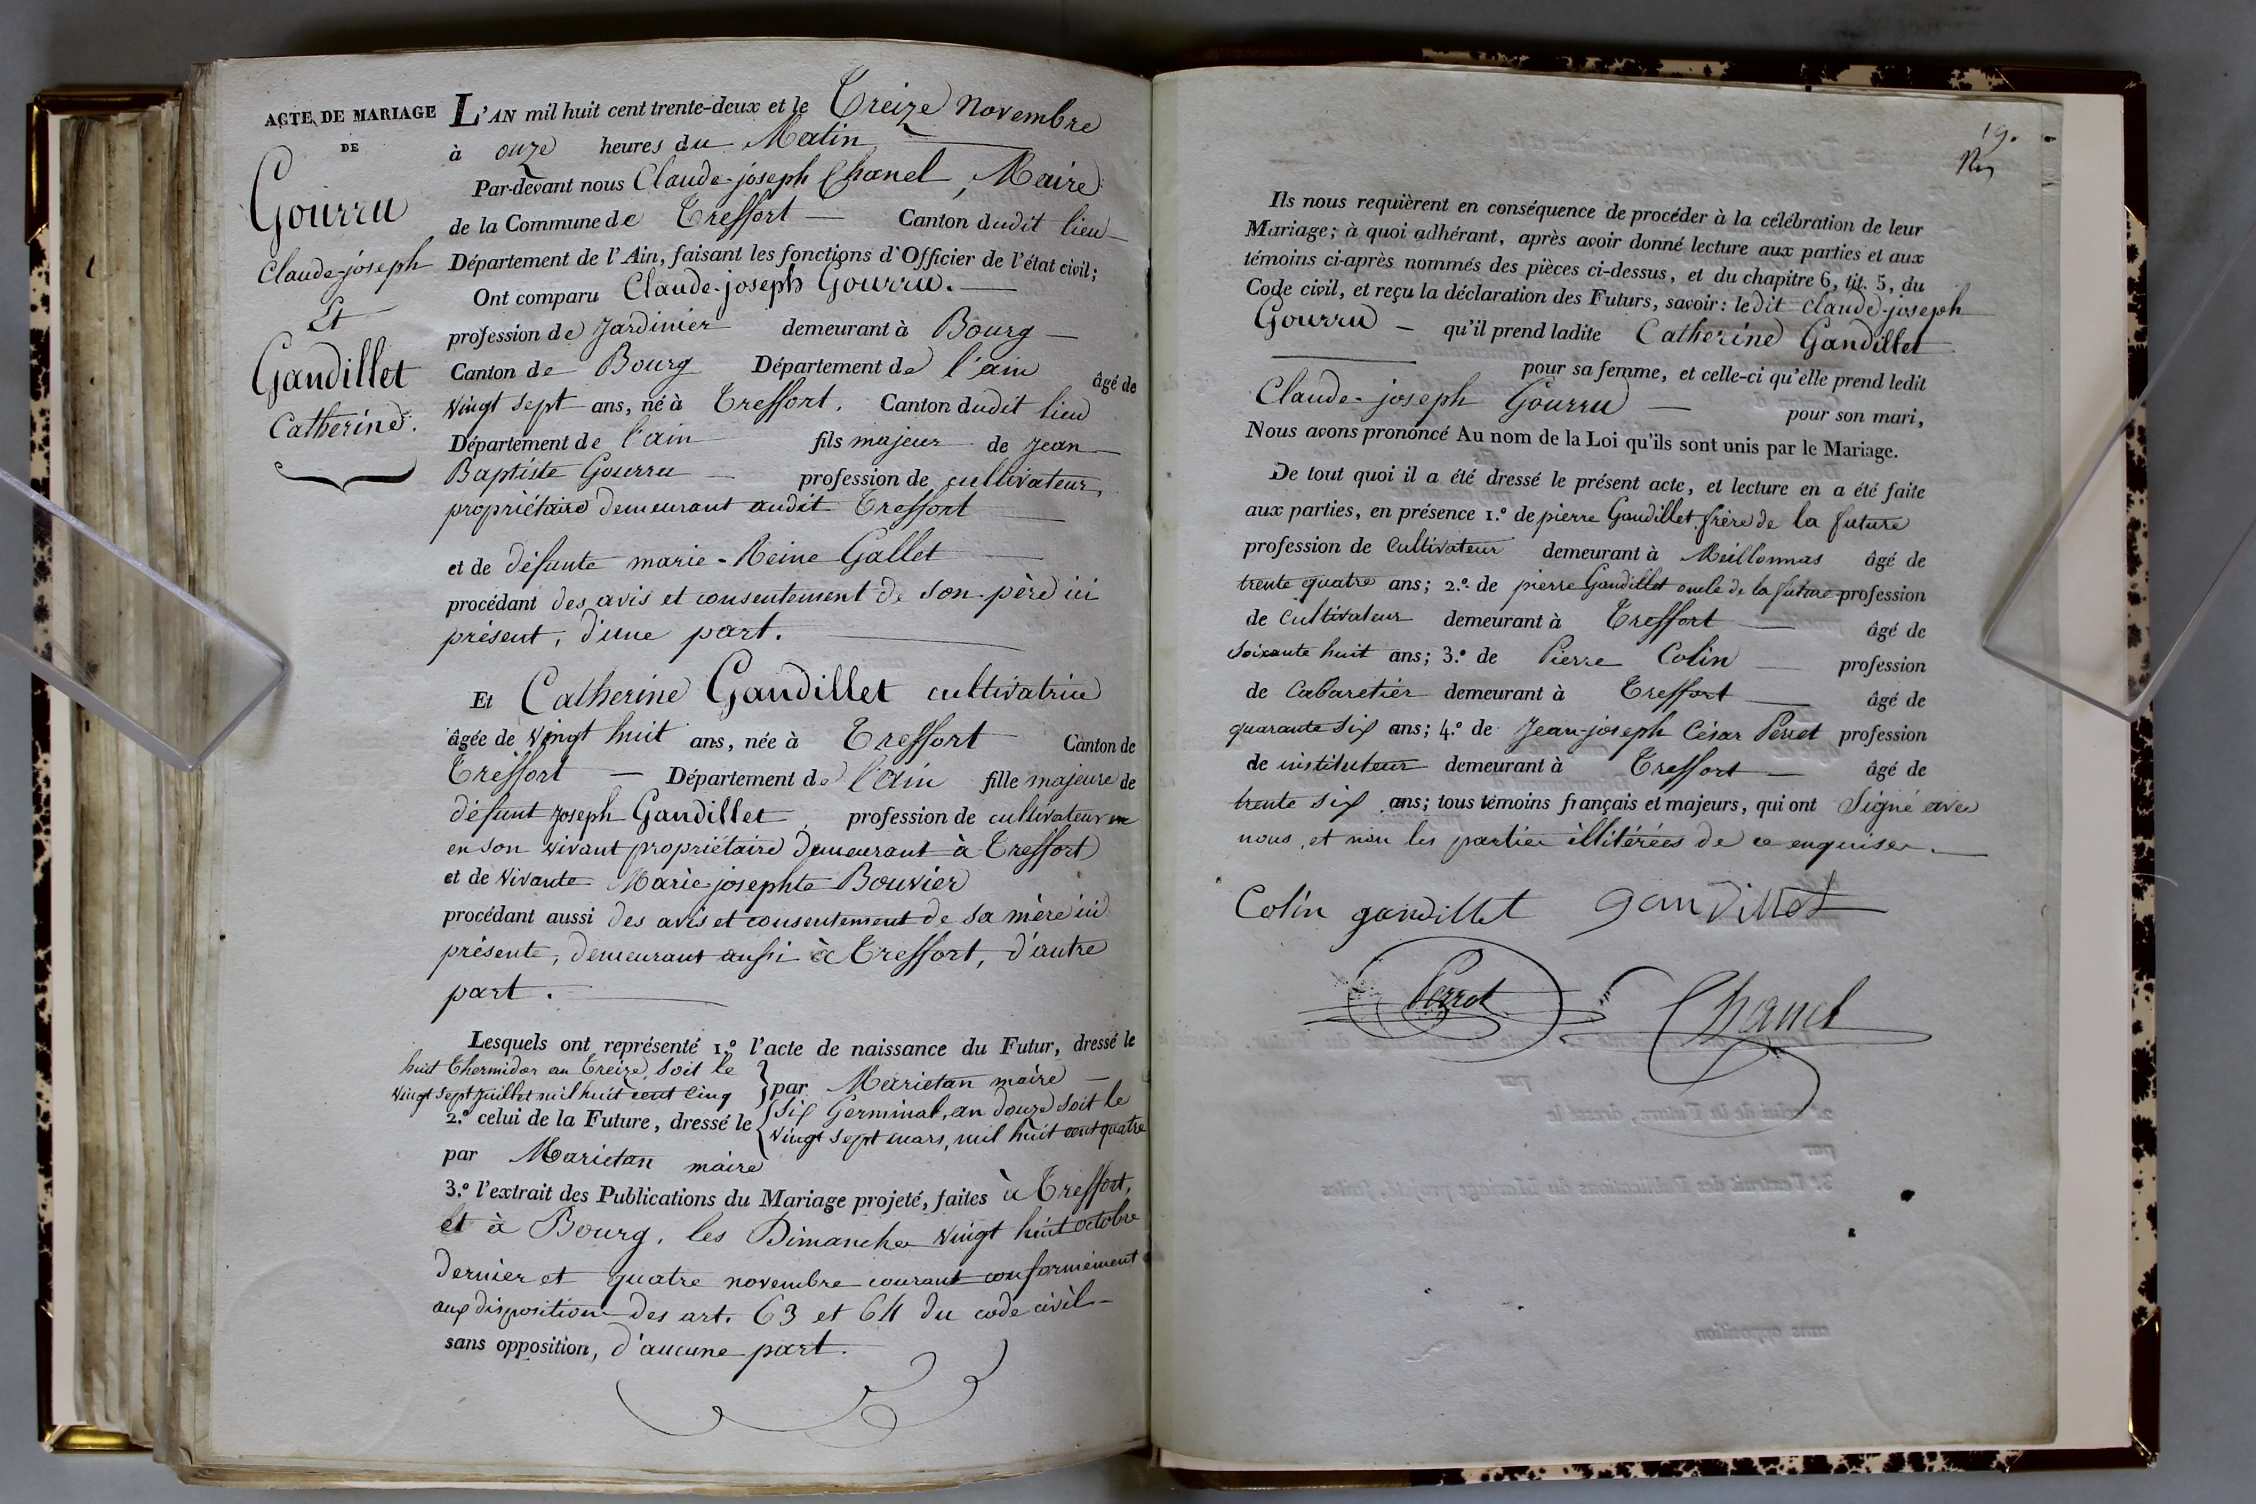 ACTE DE MARIAGE
DE
Gourru
Claude-joseph
Et
Gandillet
Catherine.
L'AN mil huit cent trente-deux et le Treize Novembre
à onze heures du Matin
Par-devant nous Claude-joseph Chanel, Maire
de la Commune de Treffort — Canton dudit lieu
Département de l'Ain, faisant les fonctions d'Officier de l'état civil;
Ont comparu Claude-joseph Gourru. —
profession de Jardinier demeurant à Bourg —
Canton de Bourg Département de l'ain âgé de
vingt sept ans, né à Treffort. Canton dudit lieu
Département de l'ain fils majeur de jean
Baptiste Gourru — profession de cultivateur,
propriétaire demeurant audit Treffort —
et de défunte marie-Reine Gallet —
procédant des avis et consentement de son père ici
présent, d'une part. —
Et Catherine Gandillet cultivatrice
âgée de vingt huit ans, née à Treffort Canton de
Treffort — Département de l'ain fille majeure de
défunt joseph Gandillet, profession de cultivateur
en son vivant propriétaire demeurant à Treffort
et de vivante Marie josephte Bouvier
procédant aussi des avis et consentement de sa mère ici
présente, demeurant aussi à Treffort, d'autre
part. —
Lesquels ont représenté 1.º l'acte de naissance du Futur, dressé le
huit Thermidor an Treize, soit le
vingt sept juillet mil huit cent cinq } par Marietan maire —
2.º celui de la Future, dressé le { Six Germinal, an douze soit le
vingt sept mars, mil huit cent quatre
par Marietan maire
3.º l'extrait des Publications du Mariage projeté, faites à Treffort,
et à Bourg, les Dimanches vingt huit octobre
dernier et quatre novembre courant conformément
aux dispositions des art. 63 et 64 du code civil —
sans opposition, d'aucune part.
19.
Ils nous requièrent en conséquence de procéder à la célébration de leur
Mariage; à quoi adhérant, après avoir donné lecture aux parties et aux
témoins ci-après nommés des pièces ci-dessus, et du chapitre 6, tit. 5, du
Code civil, et reçu la déclaration des Futurs, savoir: ledit Claude-joseph
Gourru — qu'il prend ladite Catherine Gandillet
— pour sa femme, et celle-ci qu'elle prend ledit
Claude-joseph Gourru — pour son mari,
Nous avons prononcé Au nom de la Loi qu'ils sont unis par le Mariage.
De tout quoi il a été dressé le présent acte, et lecture en a été faite
aux parties, en présence 1.º de pierre Gandillet frère de la future
profession de Cultivateur demeurant à Meillonnas âgé de
trente quatre ans; 2.º de pierre Gandillet oncle de la future profession
de Cultivateur demeurant à Treffort — âgé de
soixante huit ans; 3.º de Pierre Colin — profession
de Cabaretier demeurant à Treffort — âgé de
quarante six ans; 4.º de Jean-joseph César Perret profession
de instituteur demeurant à Treffort — âgé de
trente six ans; tous témoins français et majeurs, qui ont Signé avec
nous, et non les parties illitérées de ce enquises. —
Colin gandillet gandillet
Perret Chanel